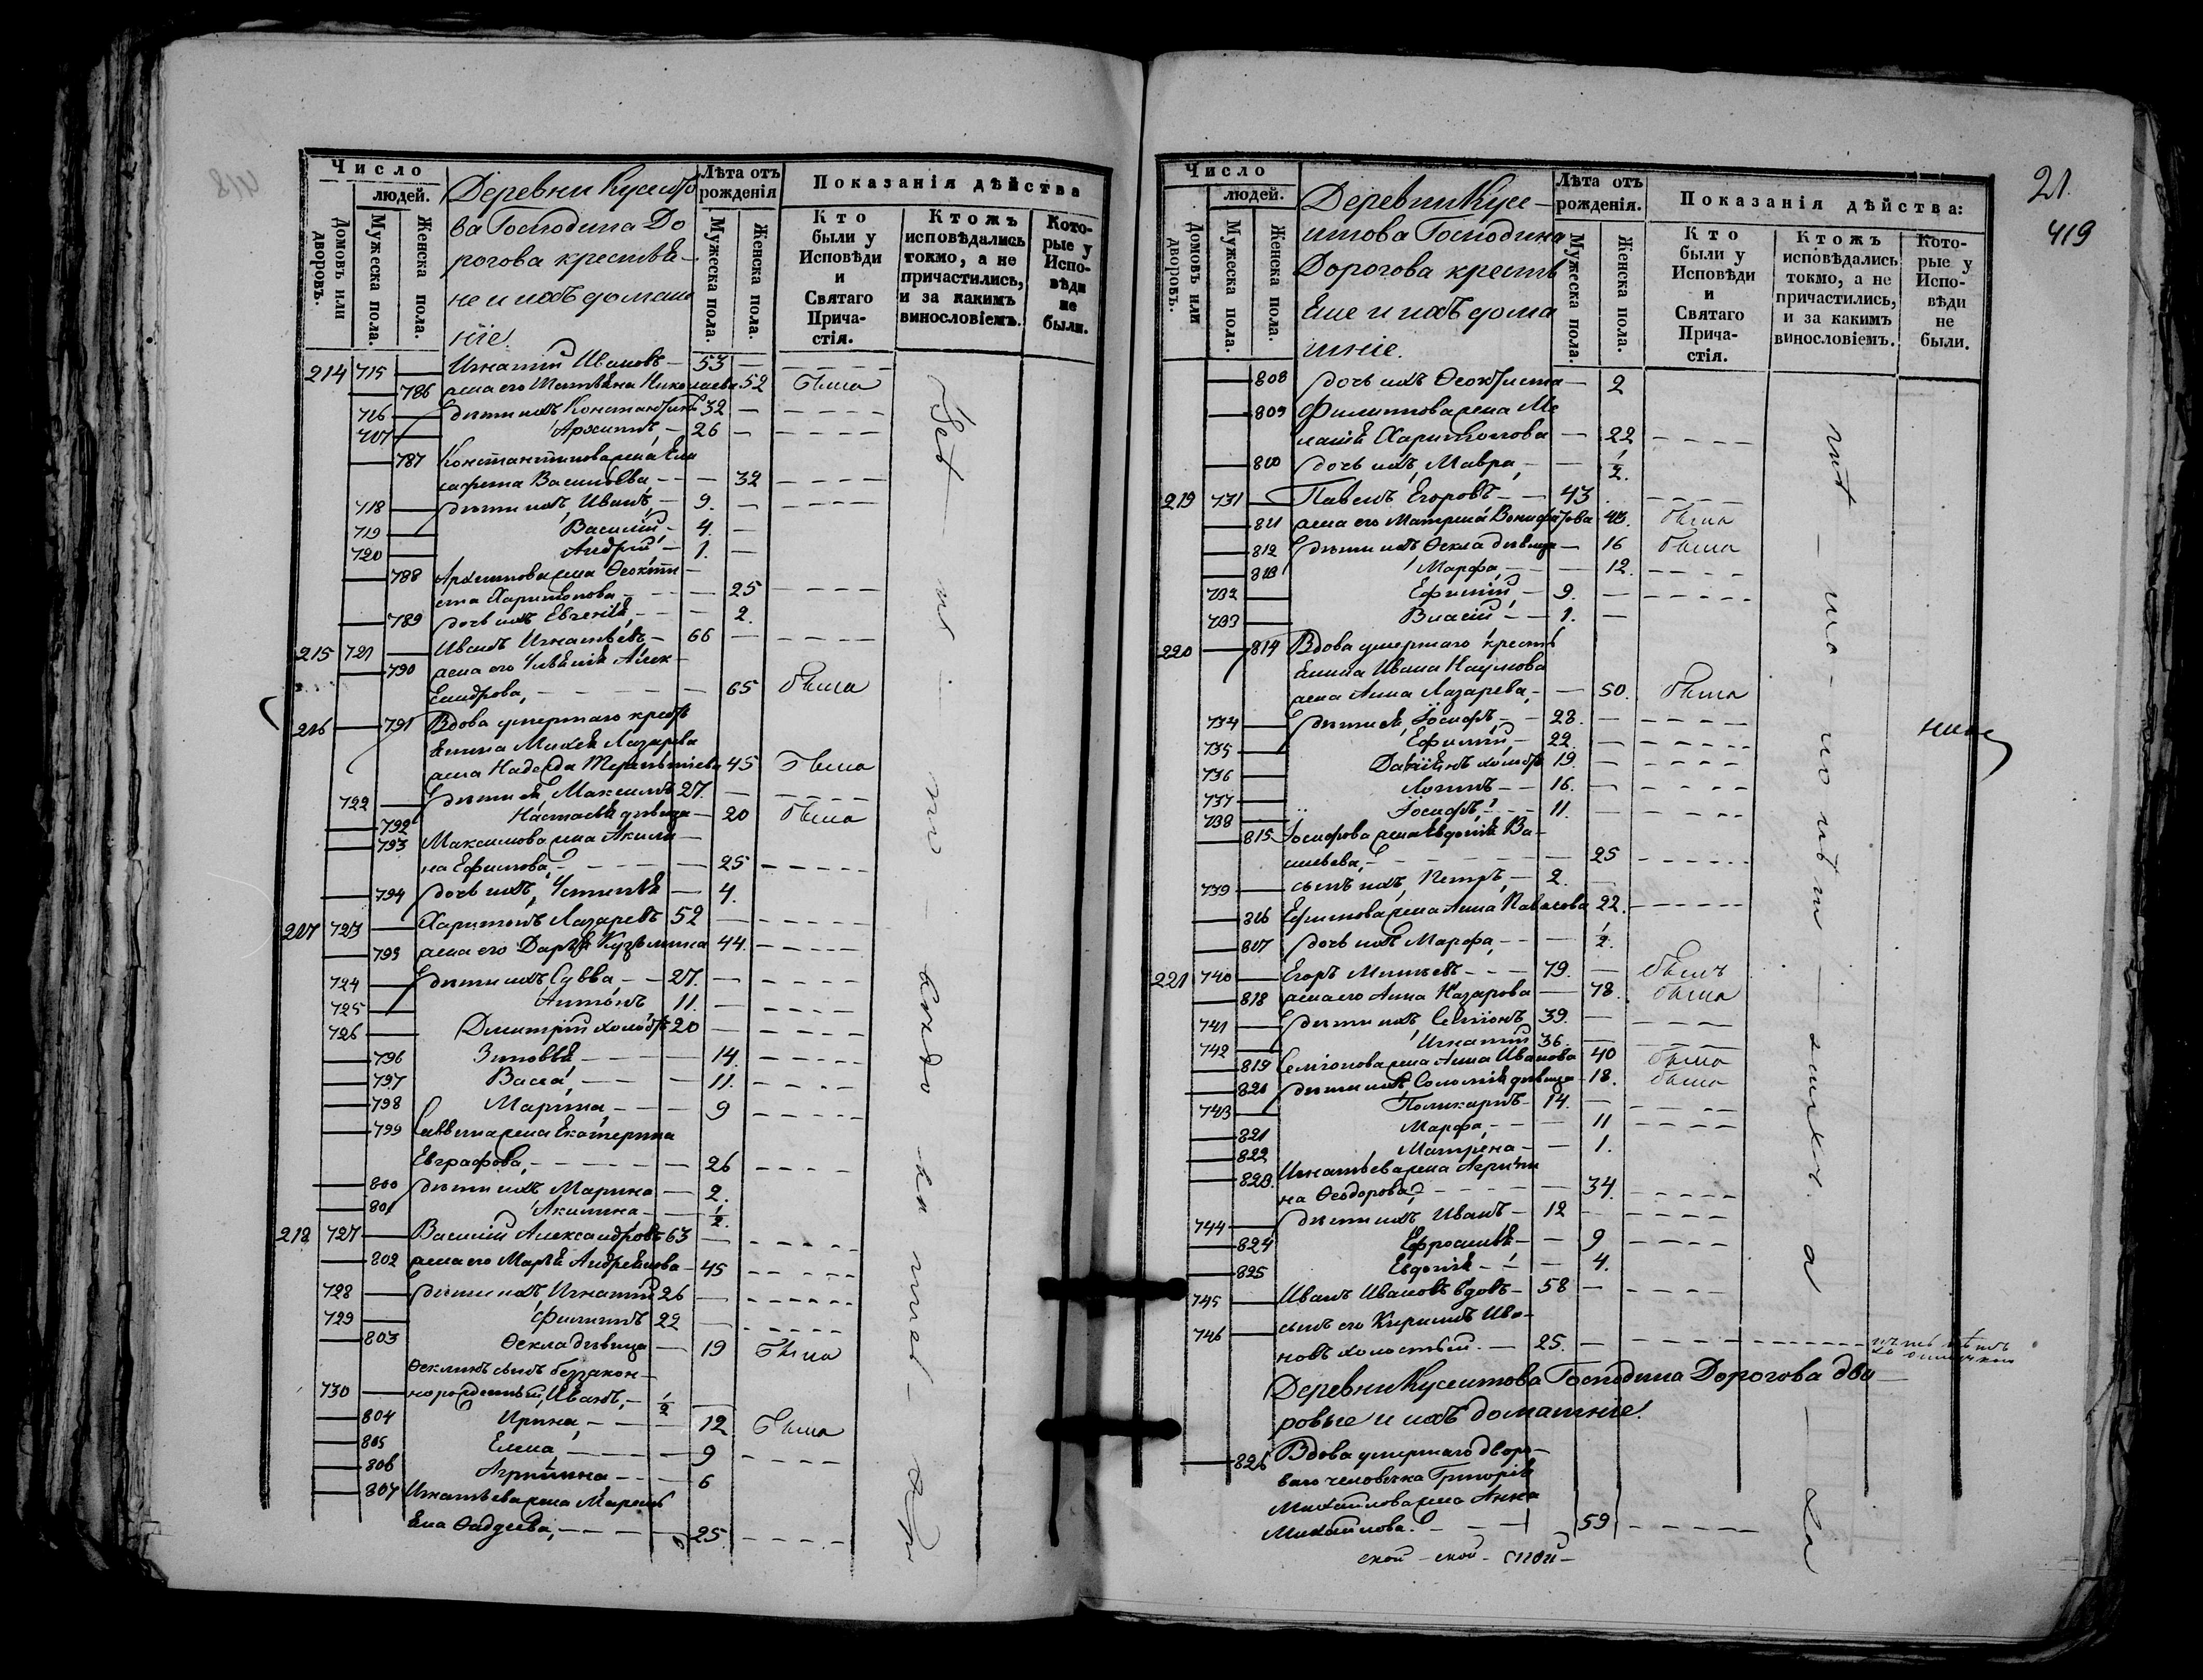 Число
людей.
Домовъ или дворовъ.
Мужеска пола.
Женска пола.
Деревни Кусито
ва Господина До
рогова крестья-
не и ихъ домаш
ніе.
Лѣта отъ рожденія
Мужеска пола.
Женска пола.
Показанія дѣйства
Кто были у Исповѣди и Святаго Прича-стія.
Ктожъ исповѣдались токмо, а не причастились, и за какимъ винословіемъ.
Кото-рые у Испо-вѣди не были.
214 715 Игнатій Ивановъ 53
786 жена его Татьяна Николаева 52 была
716 дѣти ихъ Константинъ 32
717 Архиппъ 26
787 Константинова жена Ели
савета Васильева 32
718 дѣти ихъ, Иванъ, 9.
719 Василій, 4.
720 Андрей 1.
788 Архиппова жена Ѳеокти
ста Харитонова 25
789 дочь ихъ Евгенія, 2.
215 721 Иванъ Игнатьевъ 66
790 жена его Алек-
сандрова, 65 была
216 791 Вдова умершаго кресть
янина Михея Лазарева
жена Надежда Терентьева 45 была
722 дѣти ея, Максимъ 27.
792 Настасья дѣвица 20 была
793 Максимова жена Акили
на Ефимова, 25
794 дочь ихъ, Устинья 4.
217 723 Харитонъ Лазаревъ 52
795 жена его Дарья Кузьмина 44.
724 дѣти ихъ Савва, 27.
725 Антонъ 11.
726 Димитрій холостъ 20
796 Зиновья 14.
797 Васса, 11.
798 Марина, 9
799 Саввина жена Екатерина
Евграфова, 26
800 дѣти ихъ Марина 2.
801 Акилина 1/2.
218 727 Василій Александровъ 63
802 жена его Марья Андреянова 45
728 дѣти ихъ Игнатій 26
729 Филиппъ 22
803 Ѳекла дѣвица 19 была
Ѳеклинъ сынъ беззакон-
730 норожденный, Иванъ, 1/2
804 Ирина, 12 была
805 Елена, 9
806 Агрипина 6
807 Игнатьева жена Марем
яна Ѳаддеева, 25.
21.
419
Число
людей.
Домовъ или дворовъ.
Мужеска пола.
Женска пола.
Деревни Кус-
итова Господина
Дорогова кресть
яне и ихъ дома
шніе.
Лѣта отъ рожденія.
Мужеска пола.
Женска пола.
Показанія дѣйства:
Кто были у Исповѣди и Святаго Прича-стія.
Ктожъ исповѣдались токмо, а не причастились, и за какимъ винословіемъ.
Кото-рые у Испо-вѣди не были.
808 дочь ихъ Ѳеоктиста 2
809 Филиппова жена Ме
ланія Харитонова 22
810 дочь ихъ, Мавра, 1/2.
219 731 Павелъ Егоровъ 43
811 жена его Матрена Вонифатова 43. была
812 дѣти ихъ Ѳекла дѣвица 16 была
813 Марфа, 12.
732 Ефимій, 9.
733 Власій 1.
220 814 Вдова умершаго кресть
янина Ивана Наумова
жена Анна Лазарева, 50. была
734 дѣти ея, Іосифъ, 28.
735 Ефимій, 22.
736 Даніилъ холостъ 19.
737 Логинъ 16.
738 Іосифъ, 11.
815 Іосифова жена Евдокія Ва-
сильева, 25
739 сынъ ихъ, Петръ, 2.
816 Ефимова жена Анна Павлова 22.
817 дочь ихъ Марфа, 1/2.
221 740 Егоръ 79. былъ
818 жена его Анна Назарова 78. была
741 дѣти ихъ, Семіонъ 39.
742 Игнатій 36.
819 Семіонова жена Анна Иванова 40 была
820 дѣти ихъ, Соломія дѣвица 18. была
743 Поликарпъ 14.
821 Марфа, 11
822 Матрена 1.
823. Игнатьева жена Агрипи
на Ѳеодорова, 34.
744 дѣти ихъ Иванъ 12
824 Ефросинья 9
825 Евдокія 4.
745 Иванъ Ивановъ вдовъ 58
746 сынъ его Кириллъ Ива-
новъ холостый. 25.
Деревни Куситова Господина Дорогова дво-
ровые и ихъ домашніе.
826 Вдова умершаго дворо-
ваго человѣка Григорія
Михайлова жена Анна
Михайлова. 59